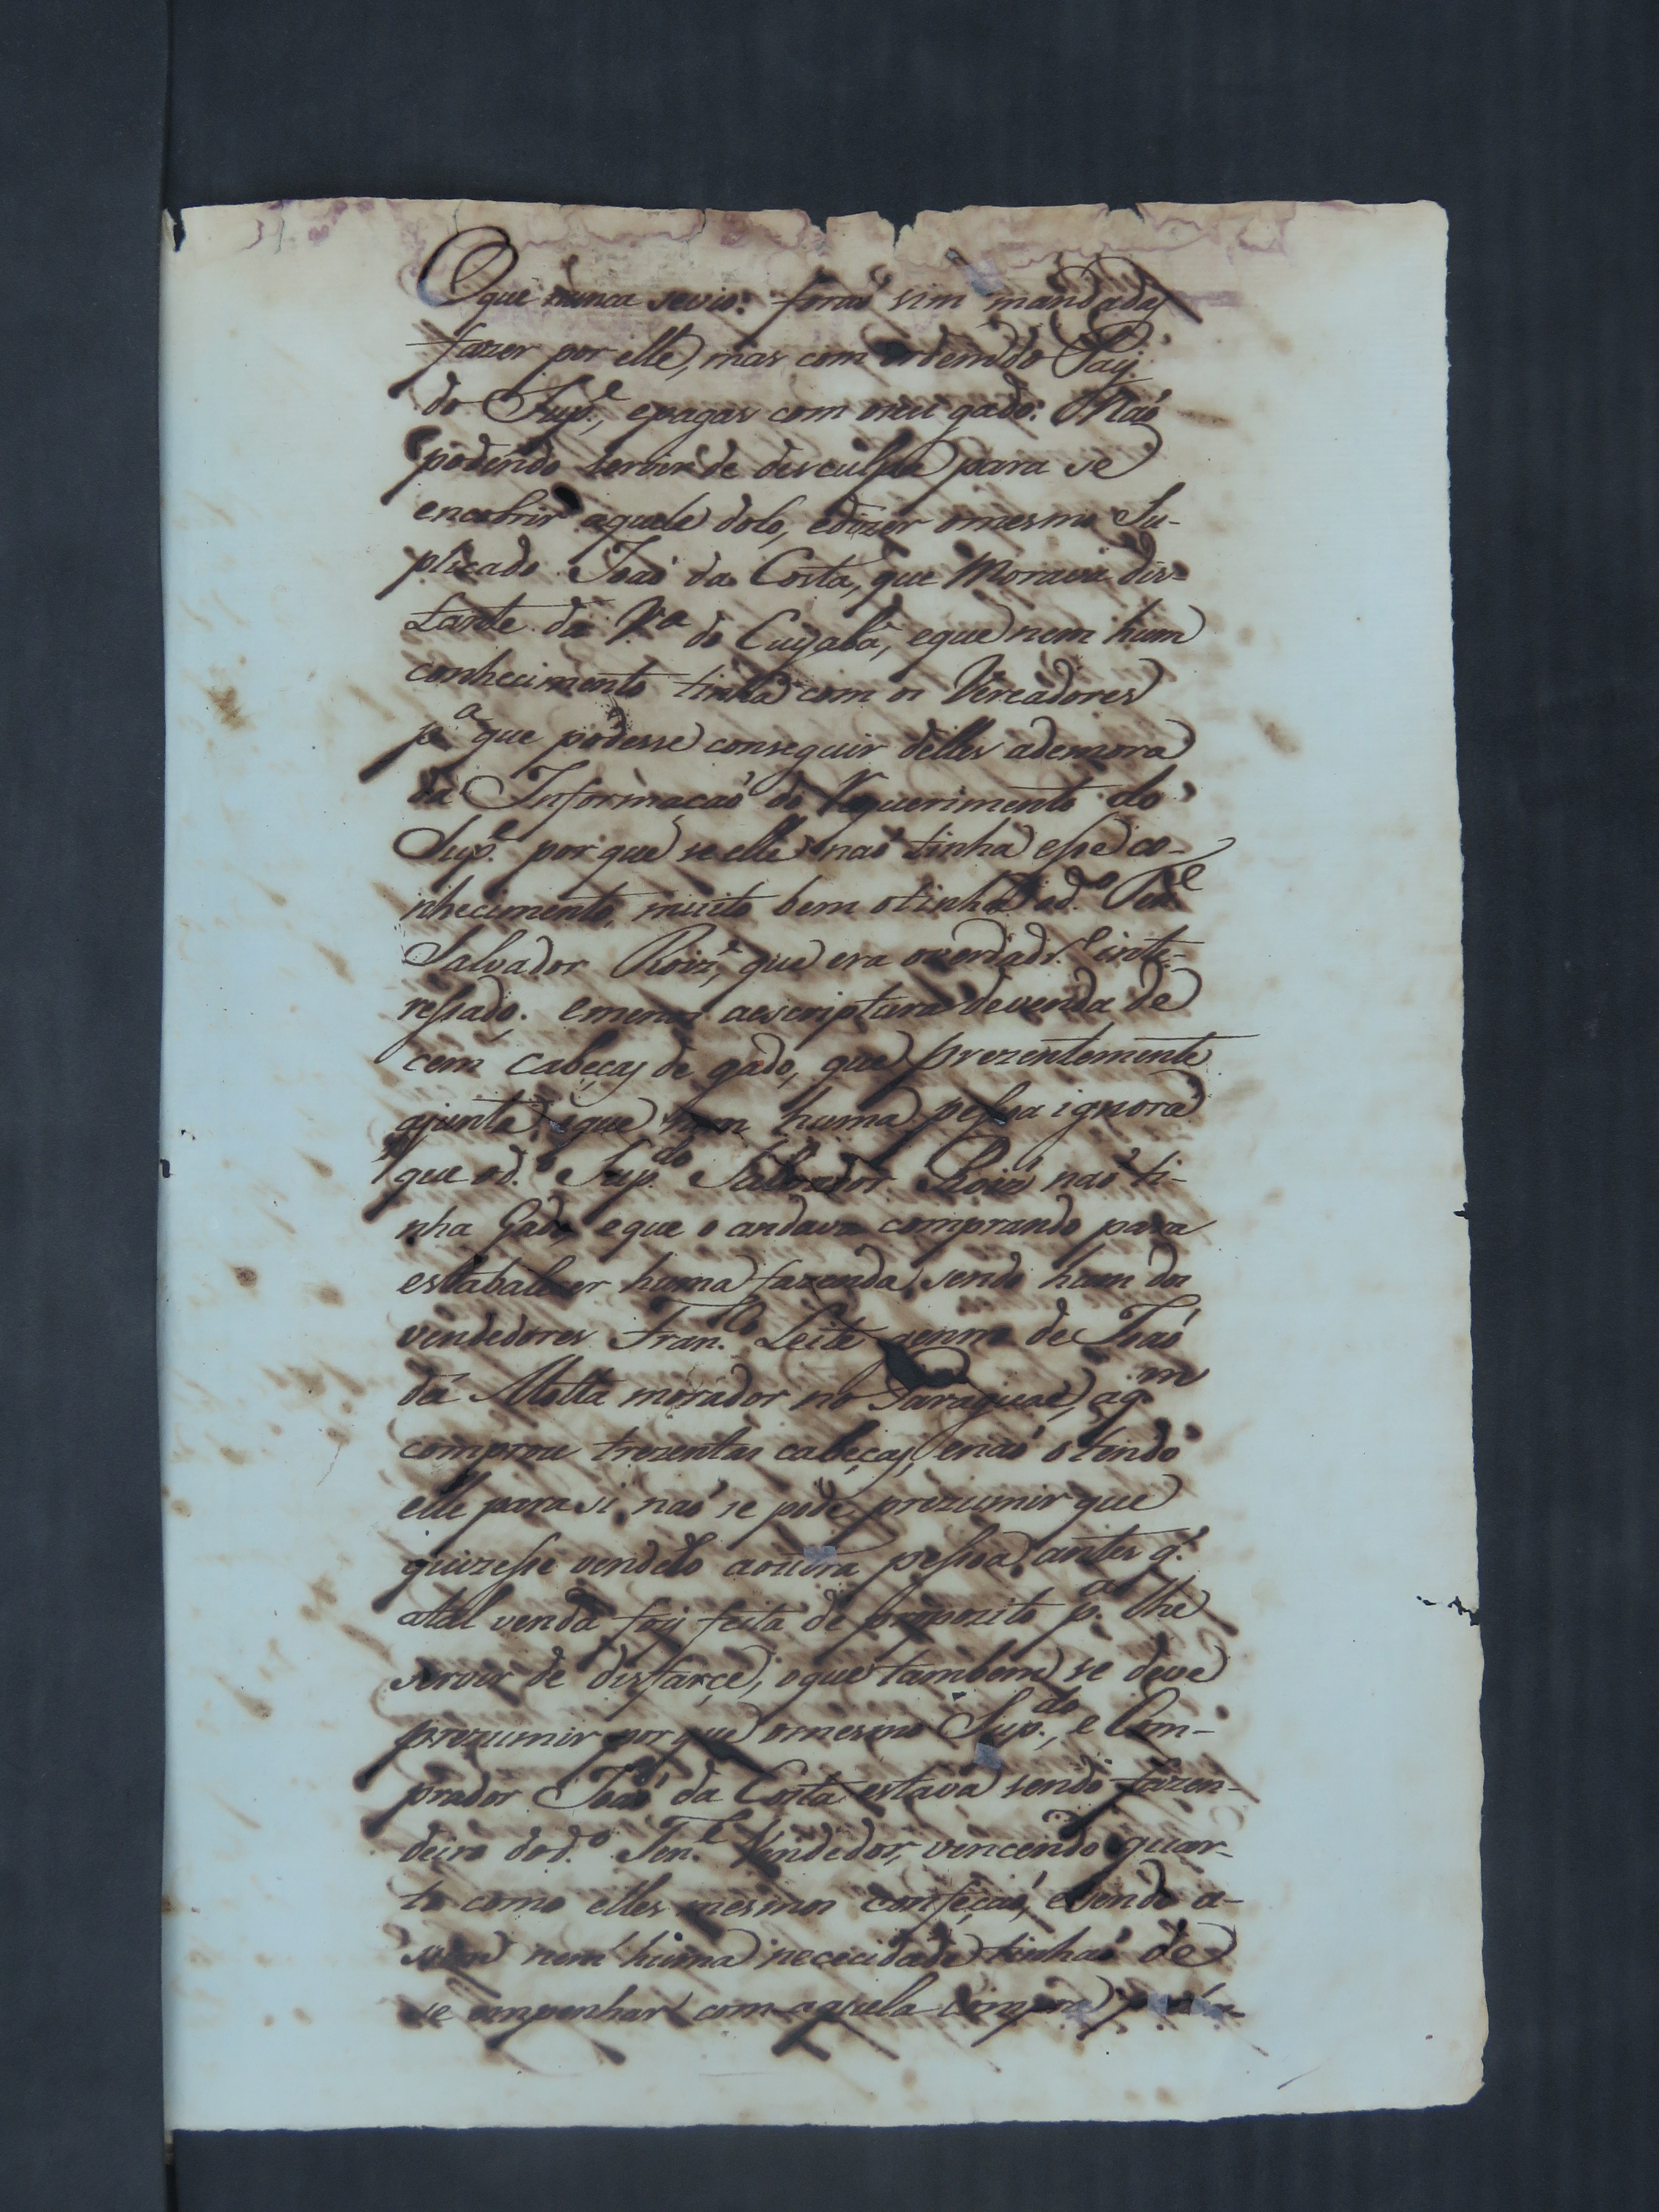 O que nunca sevio: foraõ sim mandadas
fazer por elle, mas com ordem do Pay
do Sup.e, epagas com oseu gado: Naõ
podendo servir de desculpa para se
encobrir aquele dolo, edizer omesmo Su-
plicado Joaõ da Costa, que Morava dis-
tante da V.a do Cuyabá, eque nem hum
conhecimento tinha com os Vereadores
p.a que podesse conseguir delles ademora
da Informaçaõ do Requerimento do
Sup.e por que se elle naõ tinha esse co-
nhecimento, muito bem otinha od.o Ten.e
Salvador Roiz', que era overdadr.o inte-
ressado. emenos aescriptura devenda de
cem Cabeças de gado, que prezentemente
ajunta; eque nem huma pessoa ignora
que od.o Sup.do Salvador Roiz' naõ ti-
nha Gado, eque o andava comprando para
estabalecer huma fazenda, sendo hum dos
vendedores Fran.co Leite genro de Joaõ
da Motta morador no Paraguai, aq.m
comprou trezentas cabeças, enaõ otendo
elle para si, naõ se pode prezumir que
quizesse vendelo aoutra pessoa, antes q.'
atal venda foy feita de propozito p.a lhe
servir de disfarce, oque tambem se deve
prezumir por que omesmo Sup.do, e Com-
prador Joaõ da Costa estava sendo fazen-
deiro dod.o Ten.e Vendedor, vencendo quar-
to como elles mesmos confeçaõ, esendo a-
sim nem huma nececidade tinhaõ de
se empenhar com aquela compra